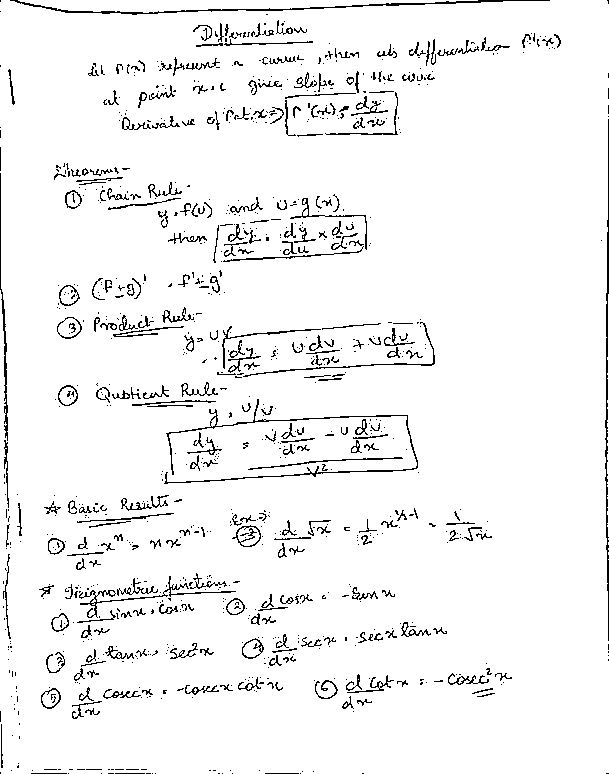 Differentiation
Let P(x) represent a curve, then its differentiation P'(x)
at point x = c gives slope of the curve
Derivative of P at x => P'(x) = dy/dx
Theorems -
① Chain Rule -
y = f(u) and u = g(x)
then dy/dx = dy/du × du/dx
② (f ± g)' = f' ± g'
③ Product Rule -
y = uv
dy/dx = u dv/dx + v du/dx
④ Qutient Rule -
y = u/v
dy/dx = (v du/dx - u dv/dx)/v²
* Basic Results -
① d/dx xⁿ = n xⁿ⁻¹ ② d/dx √x = 1/2 x^(1/2-1) = 1/(2√x)
* Trignometric functions -
① d/dx sinx = cosx ② d/dx cosx = -sinx
③ d/dx tanx = sec²x ④ d/dx secx = secx tanx
⑤ d/dx cosecx = -cosecx cotx ⑥ d/dx cotx = -cosec²x